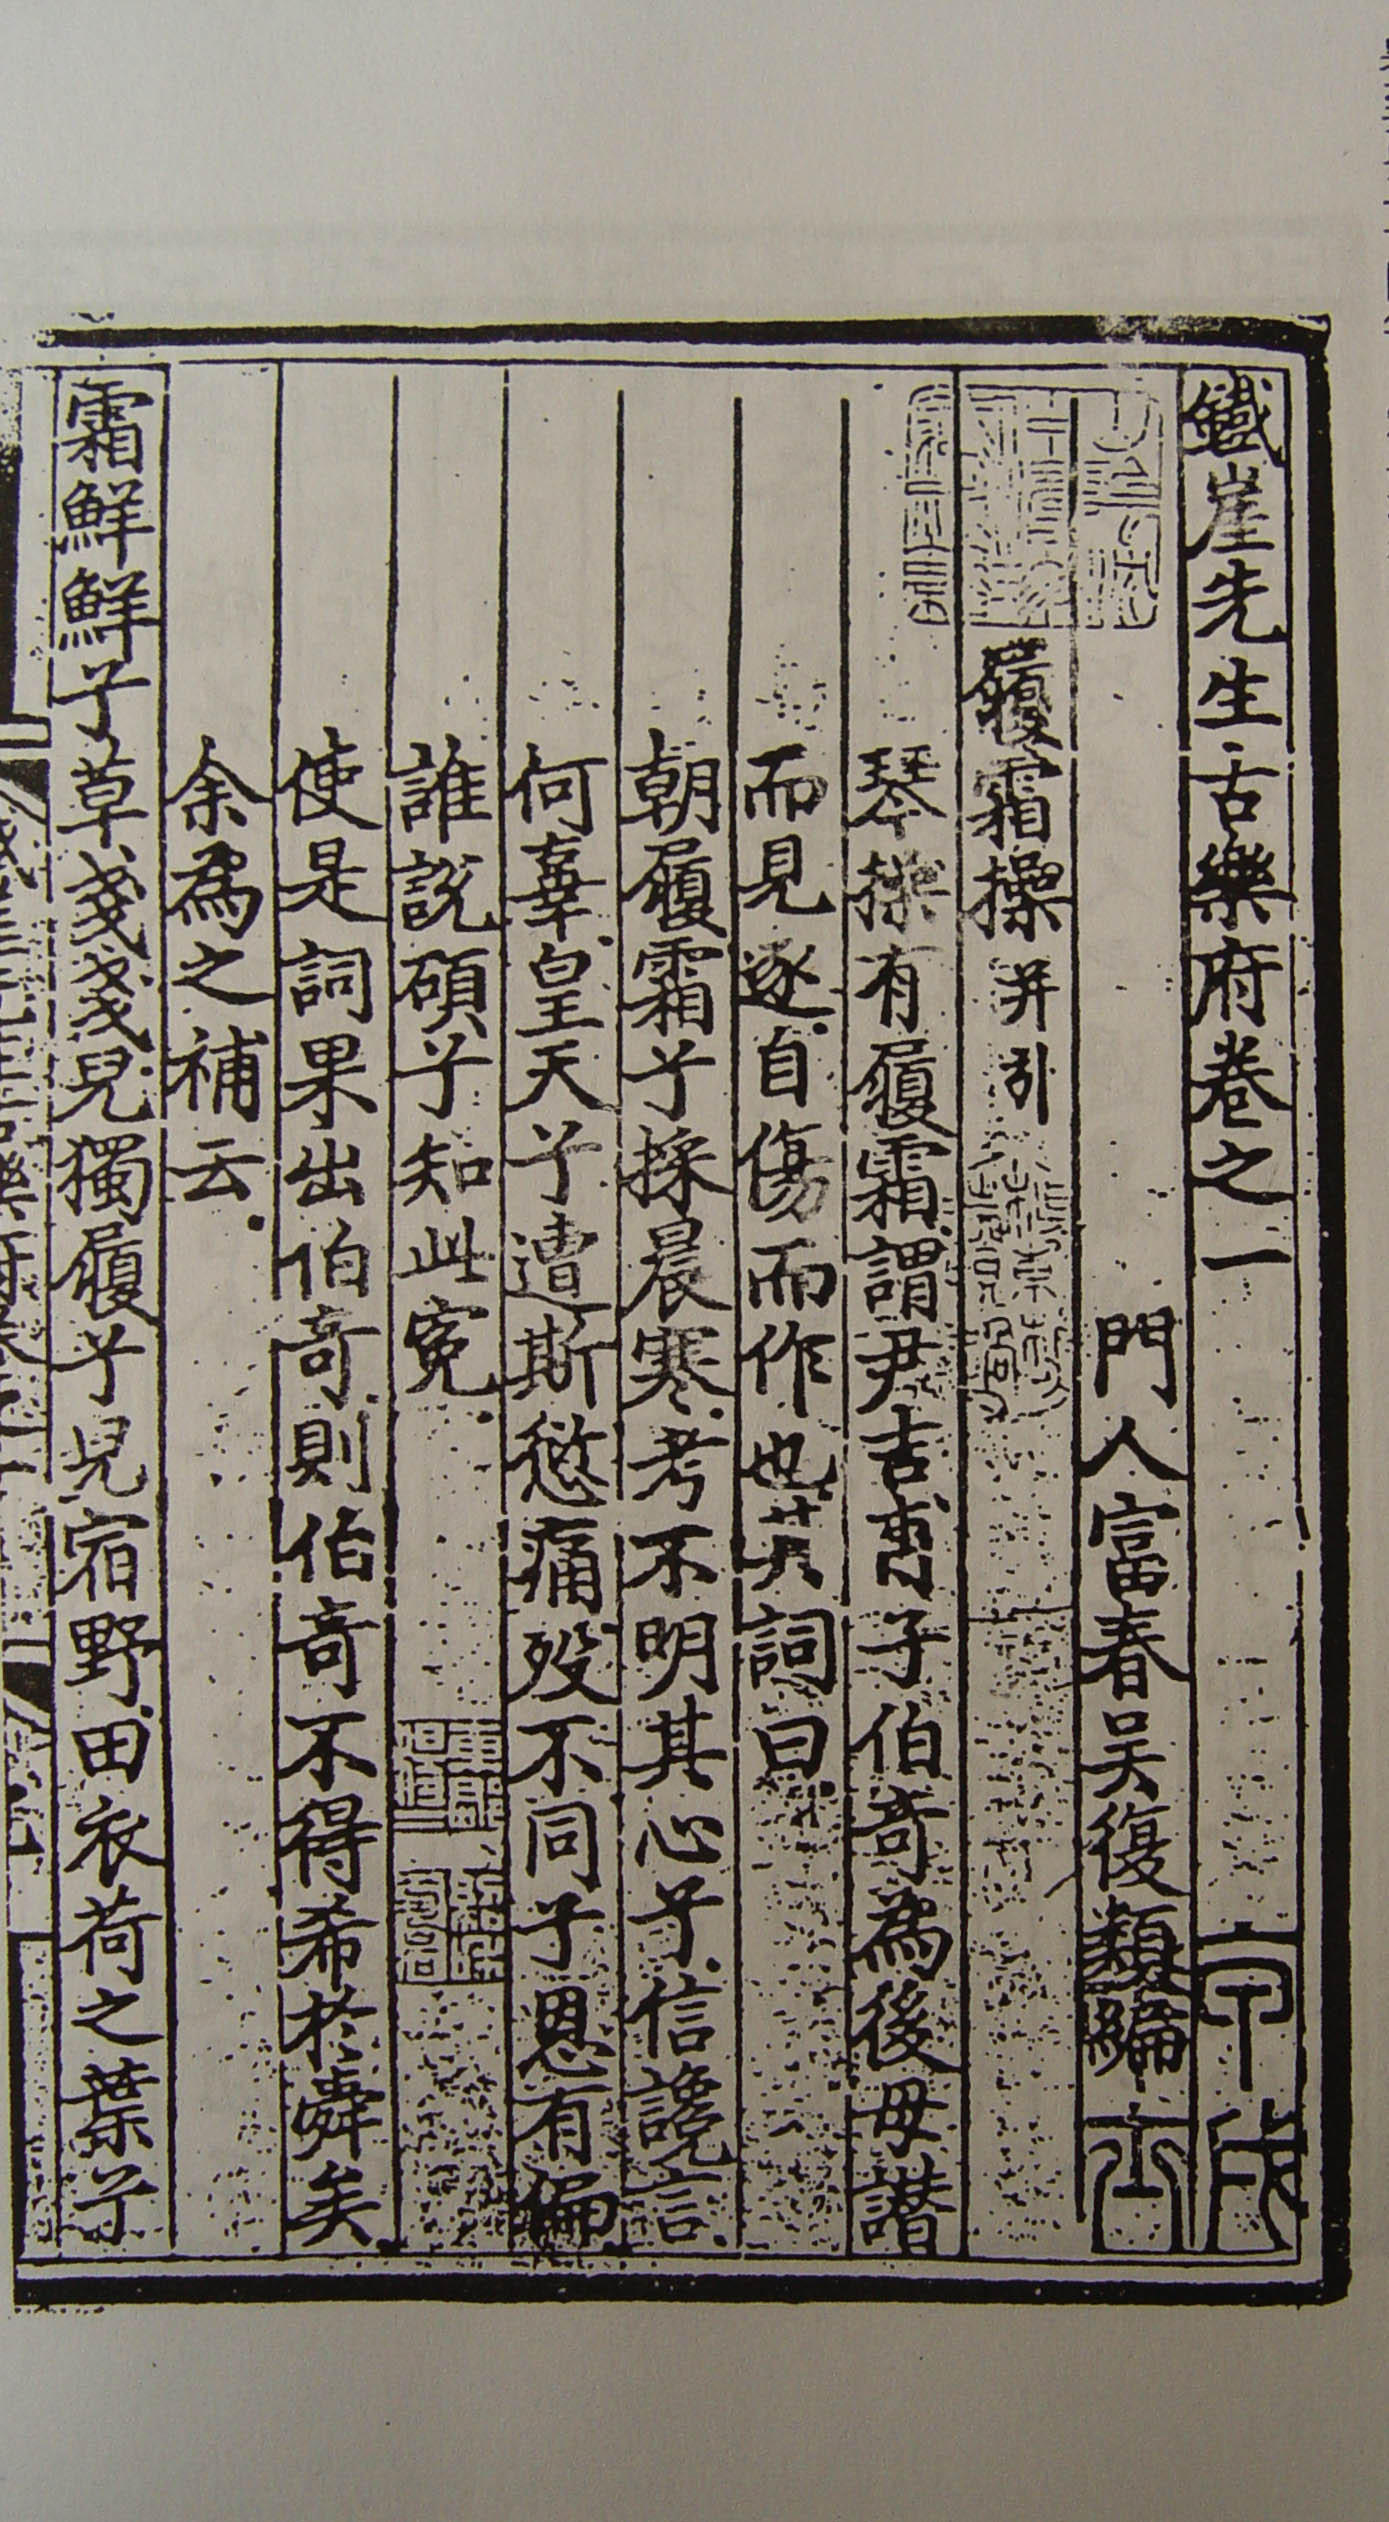 鐵崖先生古樂府卷之一
門人富春吴復類編
履霜操并引
琴操有履霜謂尹吉甫子伯奇為後母譖
而見逐自傷而作也其詞曰
朝履霜兮採晨寒考不明其心兮信讒言
何辜皇天兮遭斯愆痛殁不同兮恩有偏
誰說碩兮知此寃
使是詞果出伯奇則伯奇不得希於舜矣
余為之補云
霜鮮鮮兮草戔戔兒獨履兮兒宿野田衣荷之葉兮